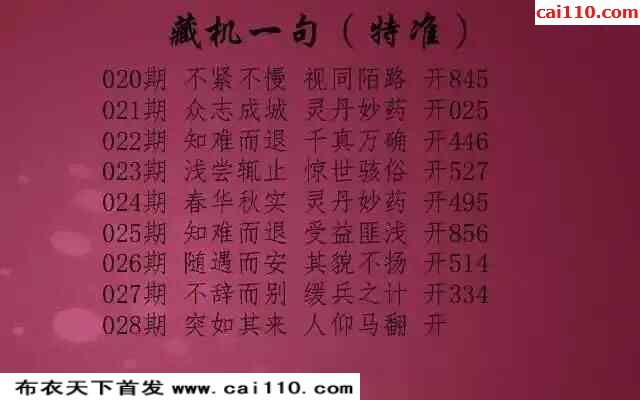 cai110.com
藏机一句（特准）
020期 不紧不慢 视同陌路 开845
021期 众志成城 灵丹妙药 开025
022期 知难而退 千真万确 开446
023期 浅尝辄止 惊世骇俗 开527
024期 春华秋实 灵丹妙药 开495
025期 知难而退 受益匪浅 开856
026期 随遇而安 其貌不扬 开514
027期 不辞而别 缓兵之计 开334
028期 突如其来 人仰马翻 开
布衣天下首发 www.cai110.com